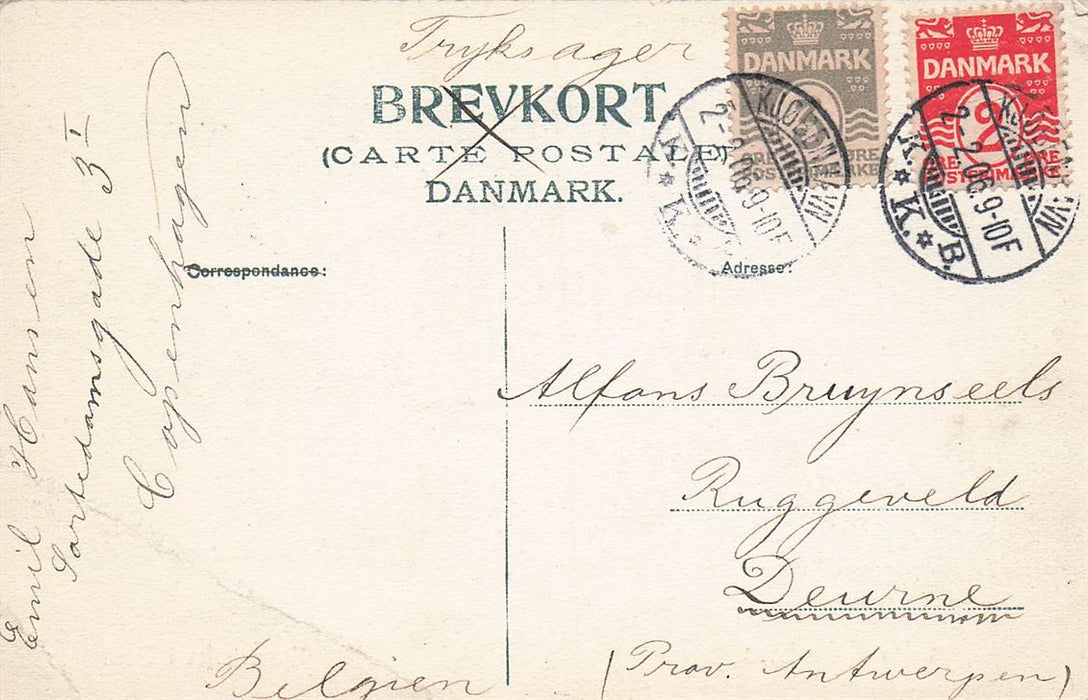 Tryksager
BREVKORT
(CARTE POSTALE)
DANMARK.
DANMARK
DANMARK
2
KJØBENHAVN
2-2.06.9-10F
K.
KJØBENHAVN
2-2.06.9-10F
K. K. B.
Correspondance:
Adresse:
Emil Hansen
Sortedamsgade 3 I
Copenhagen
Alfons Bruynseels
Ruggeveld
Deurne
(Prov. Antwerpen)
Belgien